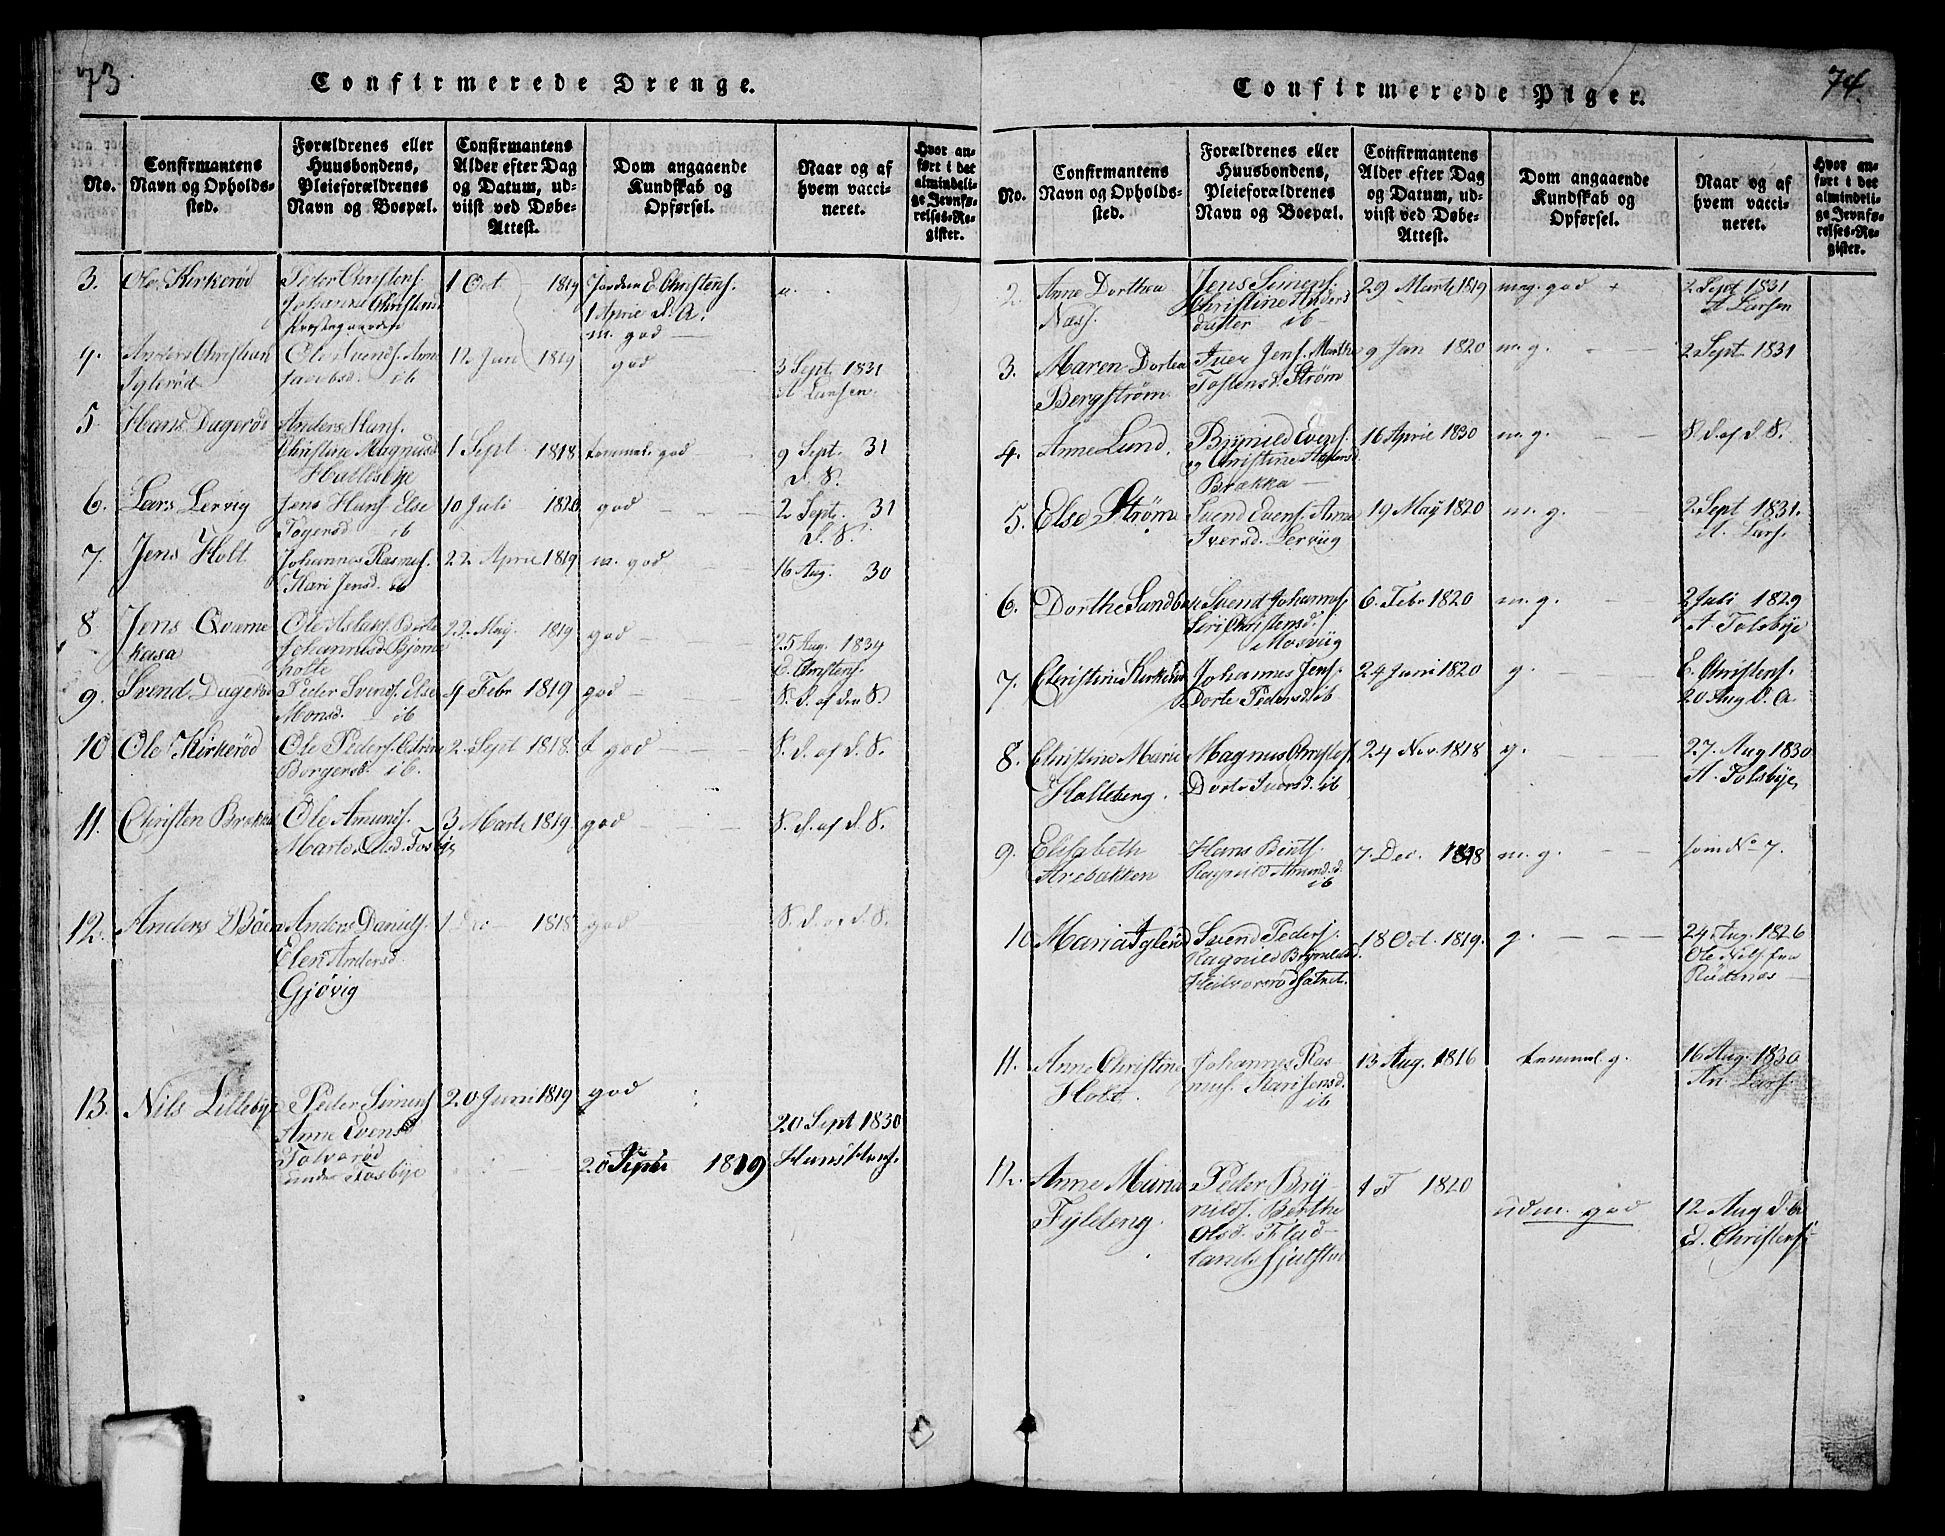 73.
Confirmerede Drenge.
No.
Confirmantens
Navn og Opholds-
sted.
Forældrenes eller
Huusbondens,
Pleieforældrenes
Navn og Boepæl.
Confirmantens
Alder efter Dag
og Datum, ud-
viist ved Døbe-
Attest.
Dom angaaende
Kundskab og
Opførsel.
Naar og af
hvem vacci-
neret.
Hvor an-
ført i det
almindeli-
ge Jevnfø-
relses-Re-
gister.
3.
Ole Kirkerød
Peder Christens.
Johanne Christensd
Prestegaarden
1 Oct 1819
Jordem E. Christens.
1 Aprie d. A.
m. god
4.
Anders Christian
Iglerød
Ole Svends. Anne
Jacobsd. ib
12 Juni 1819
god
3 Sept. 1831
A Larsen.
5
Hans Dagerød
Anders Hans.
Christine Magnusd
Hallesbye
1 Sept 1818
temmel. god
9 Sept. 31
d. S.
6.
Lars Lervig
Jens Hans. Else
Togersd ib
10 Juli 1820
god
2 Sept. 31
d. S.
7.
Jens Holt
Johannes Rasmus.
Kari Jensd. ib
22 Aprie 1819
m. god
16 Aug. 30
8
Jens Qverne
kasa
Ole Aslaks. Birte
Johannesd Bjørne
holte
22 May. 1819
god
25 Aug. 1834
E. Christens.
9.
Svend Dagerød
Peder Svends. Else
Monsd. ib
4 Febr 1819
god
S. d. af den S.
10
Ole Kirkerød
Ole Peders.
Borgersd. ib.
2. Sept 1818.
t god
S. d. af d. S.
11.
Christen Brække
Ole Amunds.
Marte Olsd. Tosbye
3 Marte 1819.
god
S. d. af d. S.
12.
Anders Bøen
Anders Daniels.
Elen Andersd
Gjøvig
1 1818
god
S. d. af d. S.
13.
Nils Lillebye
Peder Simens
Anne Evensd
Tolvorød
under Tosbye
20 Juni 1819
god
20 Septe 1819
20 Sept 1830
Hans Hans.
74.
Confirmerede Piger.
No.
Confirmantens
Navn og Opholds-
sted.
Forældrenes eller
Huusbondens,
Pleieforældrenes
Navn og Boepæl.
Confirmantens
Alder efter Dag
og Datum, ud-
viist ved Døbe-
Attest.
Dom angaaende
Kundskab og
Opførsel.
Naar og af
hvem vacci-
neret.
Hvor an-
ført i det
almindeli-
ge Jevnfø-
relses-Re-
gister.
2.
Anne Dorthea
Næss.
Jens Simens.
Christine Anders
datter ib
29 Marts 1819
meg. god +
2 Sept 1831
A Larsen
3.
Maren Dortea
Bergstrøm
Iver Jens. Marthe
Tostensd. Strøm
9 Jan 1820
m. g.
2 Sept 1831
4.
Anne Lund.
Brynild Evens.
og Christine Andersd.
Brække
16 Aprie 1830
m. g.
S. d. af d. S.
5.
Else Strøm
Svend Evens. Anne
Iversd. Lervig
19 May 1820
m. g.
2 Sept 1831.
A. Lars.
6.
Dorthe Sandbæk
Svend Johannes.
Siri Christensd.
Mosviig
6. Febr 1820
m. g.
2 Juli 1829
A. Tolsbye
7.
Christine Kirkerød
Johannes Jens.
Dorte Pedersd. ib
24 Juni 1820
g.
E. Christens.
20 Aug d. A.
8.
Christine Marie
Halleberg.
Magnus Christens.
Dorte Iversd. ib
24 Nov. 1818
g.
27. Aug 1830
A. Tolsbye
9.
Elisabeth
Arebakken
Hans Bents.
Ragnild Amundsd.
ib
7. Dec. 1818
m. g.
som No 7.
10
Maria Iglerød
Svend Peders.
Ragnild Brynildsd.
18 Oct. 1819.
g.
24 Aug. 1826
Ole Nils. fra
Rødenæs
11.
Anne Christine
Holt.
Johannes Ras-
mus. Kari Jensd.
ib
13 Aug. 1816
temmel g.
16 Aug. 1830
An. Lars.
12.
Anne Maria
Fyldeng.
Peder Bry-
nilds. Berthe
Olsd. Flad-
1820
udm. god
12 Aug d. A
E. Christens.